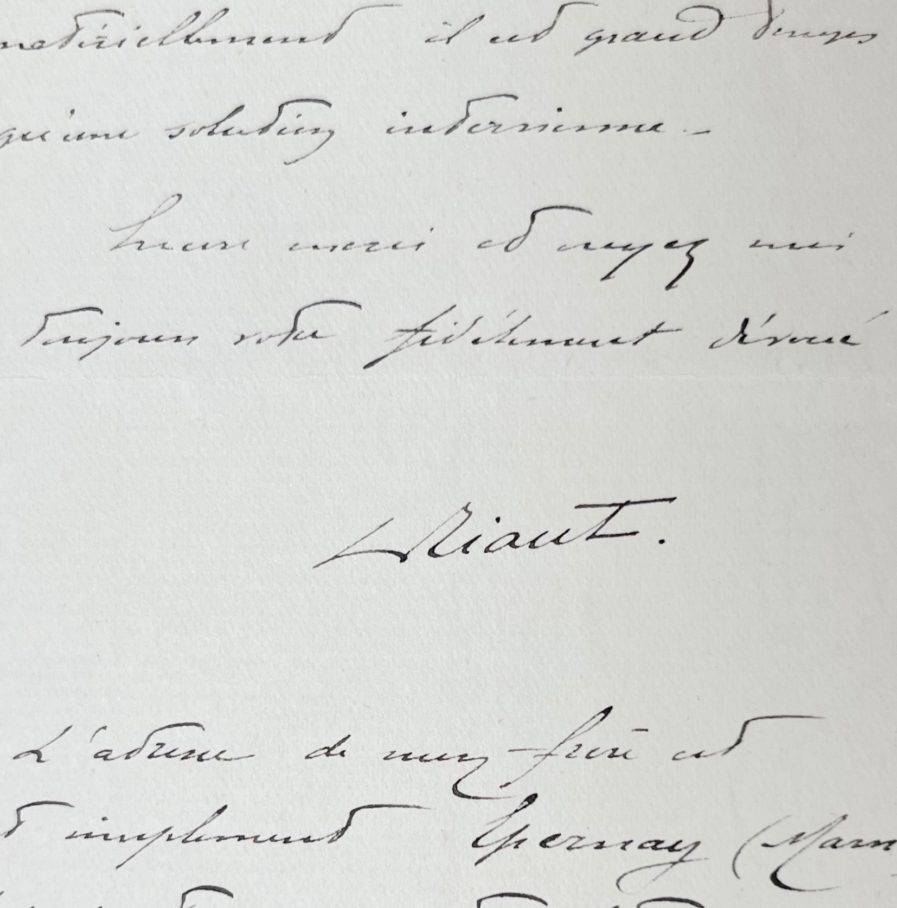 matériellement il est grand temps
qu'une solution intervienne. -
Encore merci et croyez moi
toujours votre fidèlement dévoué
LRiant.
L'adresse de mon frère est
simplement Epernay (Marne